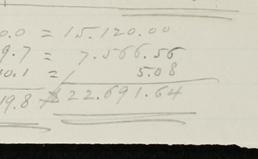 0.0 = 15.120.00
9.7 = 7.566.56
10.1 = 5.08
19.8 $22.691.64